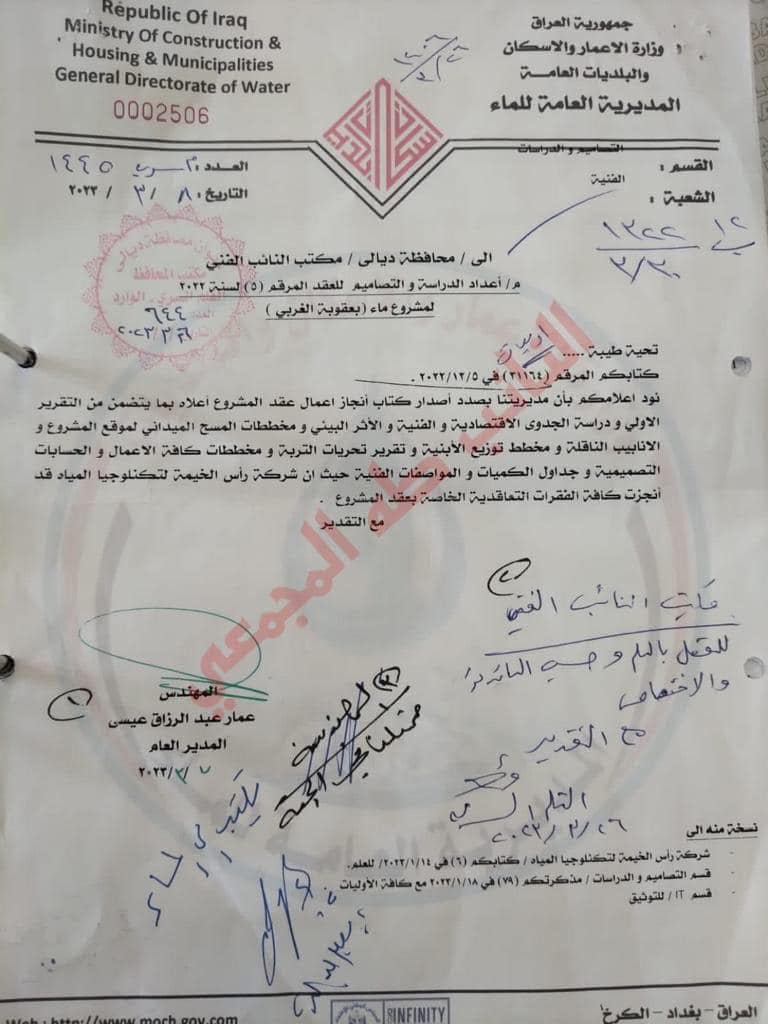 Republic Of Iraq
Ministry Of Construction &
Housing & Municipalities
General Directorate of Water
0002506
جمهورية العراق
وزارة الاعمار والاسكان
والبلديات العامة
المديرية العامة للماء
التصاميم والدراسات
القسم :
الفنية
الشعبة :
العدد : ١٤٤٥
التاريخ : ٨ / ٣ / ٢٠٢٣
١٣٢٢
٣/٣٠
الى / محافظة ديالى / مكتب النائب الفني
م/ أعداد الدراسة و التصاميم للعقد المرقم (٥) لسنة ٢٠٢٢
لمشروع ماء (بعقوبة الغربي )
مكتب المحافظ
٦٤٤
تحية طيبة .....
كتابكم المرقم (٣١١٦٤) في ٢٠٢٢/١٢/٥ .
نود اعلامكم بأن مديريتنا بصدد أصدار كتاب أنجاز اعمال عقد المشروع أعلاه بما يتضمن من التقرير
الاولي و دراسة الجدوى الاقتصادية و الفنية و الأثر البيئي و مخططات المسح الميداني لموقع المشروع و
الانابيب الناقلة و مخطط توزيع الأبنية و تقرير تحريات التربة و مخططات كافة الاعمال و الحسابات
التصميمية و جداول الكميات و المواصفات الفنية حيث ان شركة رأس الخيمة لتكنلوجيا المياه قد
أنجزت كافة الفقرات التعاقدية الخاصة بعقد المشروع .
مع التقدير
النائب طه المجمعي
٢
مكتب النائب الفني
والاختصاص
مع التقدير
٢٠٢٣/٣/٢٦
١
المهندس
عمار عبد الرزاق عيسى
المدير العام
٧ /٣/ ٢٠٢٣
٣
نسخة منه الى
- شركة رأس الخيمة لتكنلوجيا المياه / كتابكم (٦) في ٢٠٢٣/١/١٤/ للعلم.
- قسم التصاميم و الدراسات / مذكرتكم (٧٩) في ٢٠٢٣/١/١٨ مع كافة الأوليات .
- قسم IT / للتوثيق
العراق - بغداد - الكرخ
Web : http://www.moch.gov.com
INFINITY